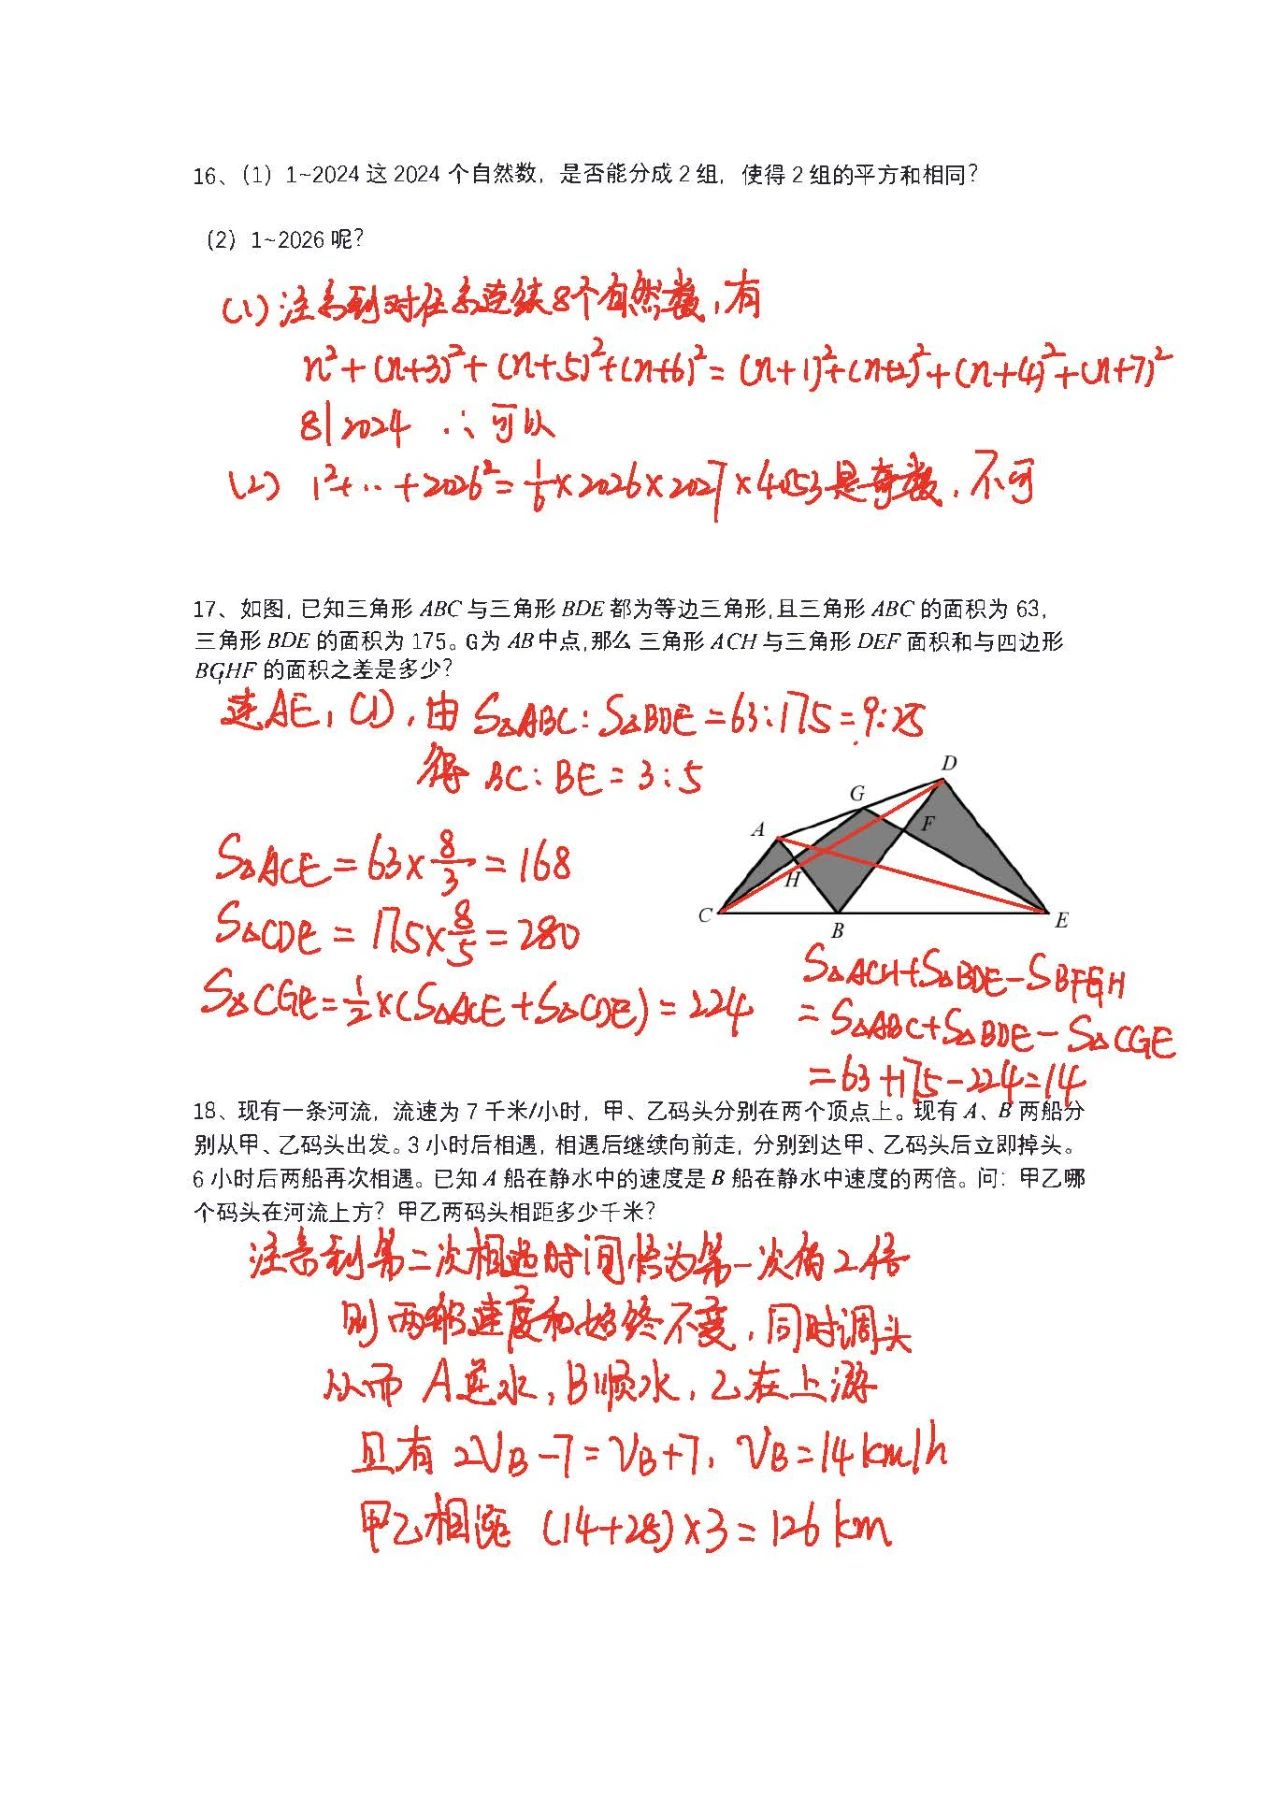 16、（1）1~2024 这 2024 个自然数，是否能分成 2 组，使得 2 组的平方和相同？
（2）1~2026 呢？
(1) 注意到对任意连续8个自然数，有
n²+(n+3)²+(n+5)²+(n+6)²=(n+1)²+(n+2)²+(n+4)²+(n+7)²
8|2024 ∴可以
(2) 1²+··+2026²=1/6×2026×2027×4053是奇数，不可
17、如图，已知三角形 ABC 与三角形 BDE 都为等边三角形，且三角形 ABC 的面积为 63，
三角形 BDE 的面积为 175。G为 AB 中点，那么 三角形 ACH 与三角形 DEF 面积和与四边形
BGHF 的面积之差是多少？
连AE，CD，由 S△ABC：S△BDE=63：175=9：25
得 BC：BE=3：5
D
G
A
F
H
C
B
E
S△ACE=63×8/3=168
S△CDE=175×8/5=280
S△CGE=1/2×(S△ACE+S△CDE)=224
S△ACH+S△BDE-SBFGH
=S△ABC+S△BDE-S△CGE
=63+175-224=14
18、现有一条河流，流速为 7 千米/小时，甲、乙码头分别在两个顶点上。现有 A、B 两船分
别从甲、乙码头出发。3 小时后相遇，相遇后继续向前走，分别到达甲、乙码头后立即掉头。
6 小时后两船再次相遇。已知 A 船在静水中的速度是 B 船在静水中速度的两倍。问：甲乙哪
个码头在河流上方？甲乙两码头相距多少千米？
注意到第二次相遇时间恰为第一次的2倍
则两船速度和始终不变，同时调头
从而 A逆水，B顺水，乙在上游
且有 2VB-7=VB+7，VB=14km/h
甲乙相距 (14+28)×3=126km